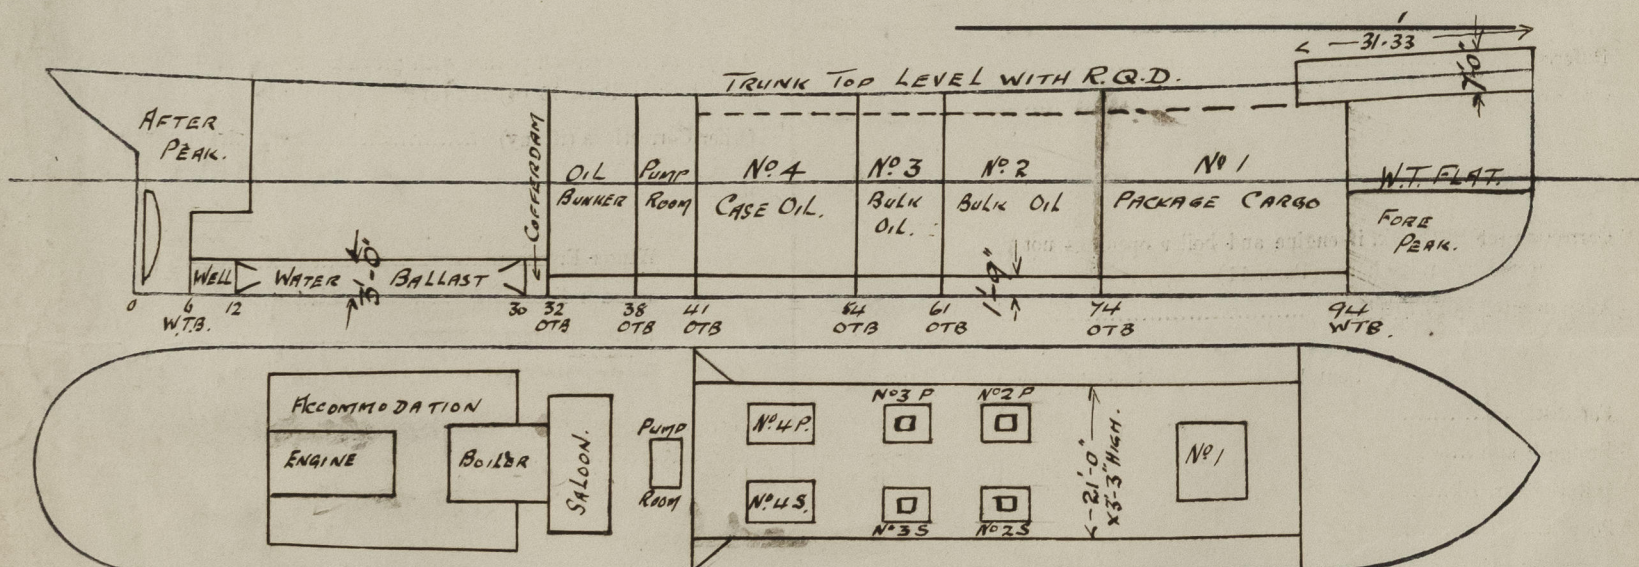 31·33'
7'-0"
TRUNK TOP LEVEL WITH R.Q.D.
AFTER PEAK.
COFFERDAM
OIL BUNKER
PUMP ROOM
Nº 4 CASE OIL.
Nº 3 BULK OIL.
Nº 2 BULK OIL
Nº 1 PACKAGE CARGO
W.T. FLAT.
FORE PEAK.
WELL
WATER BALLAST
3'-0"
1'-9"
0 6 12 30 32 38 41 54 61 74 94
W.T.B. OTB OTB OTB OTB OTB OTB WTB.
ACCOMMODATION
ENGINE
BOILER
SALOON.
PUMP ROOM
Nº 4 P.
Nº 3 P
Nº 2 P
Nº 4 S.
Nº 3 S
Nº 2 S
21'-0"
x 3'-3" HIGH.
Nº 1